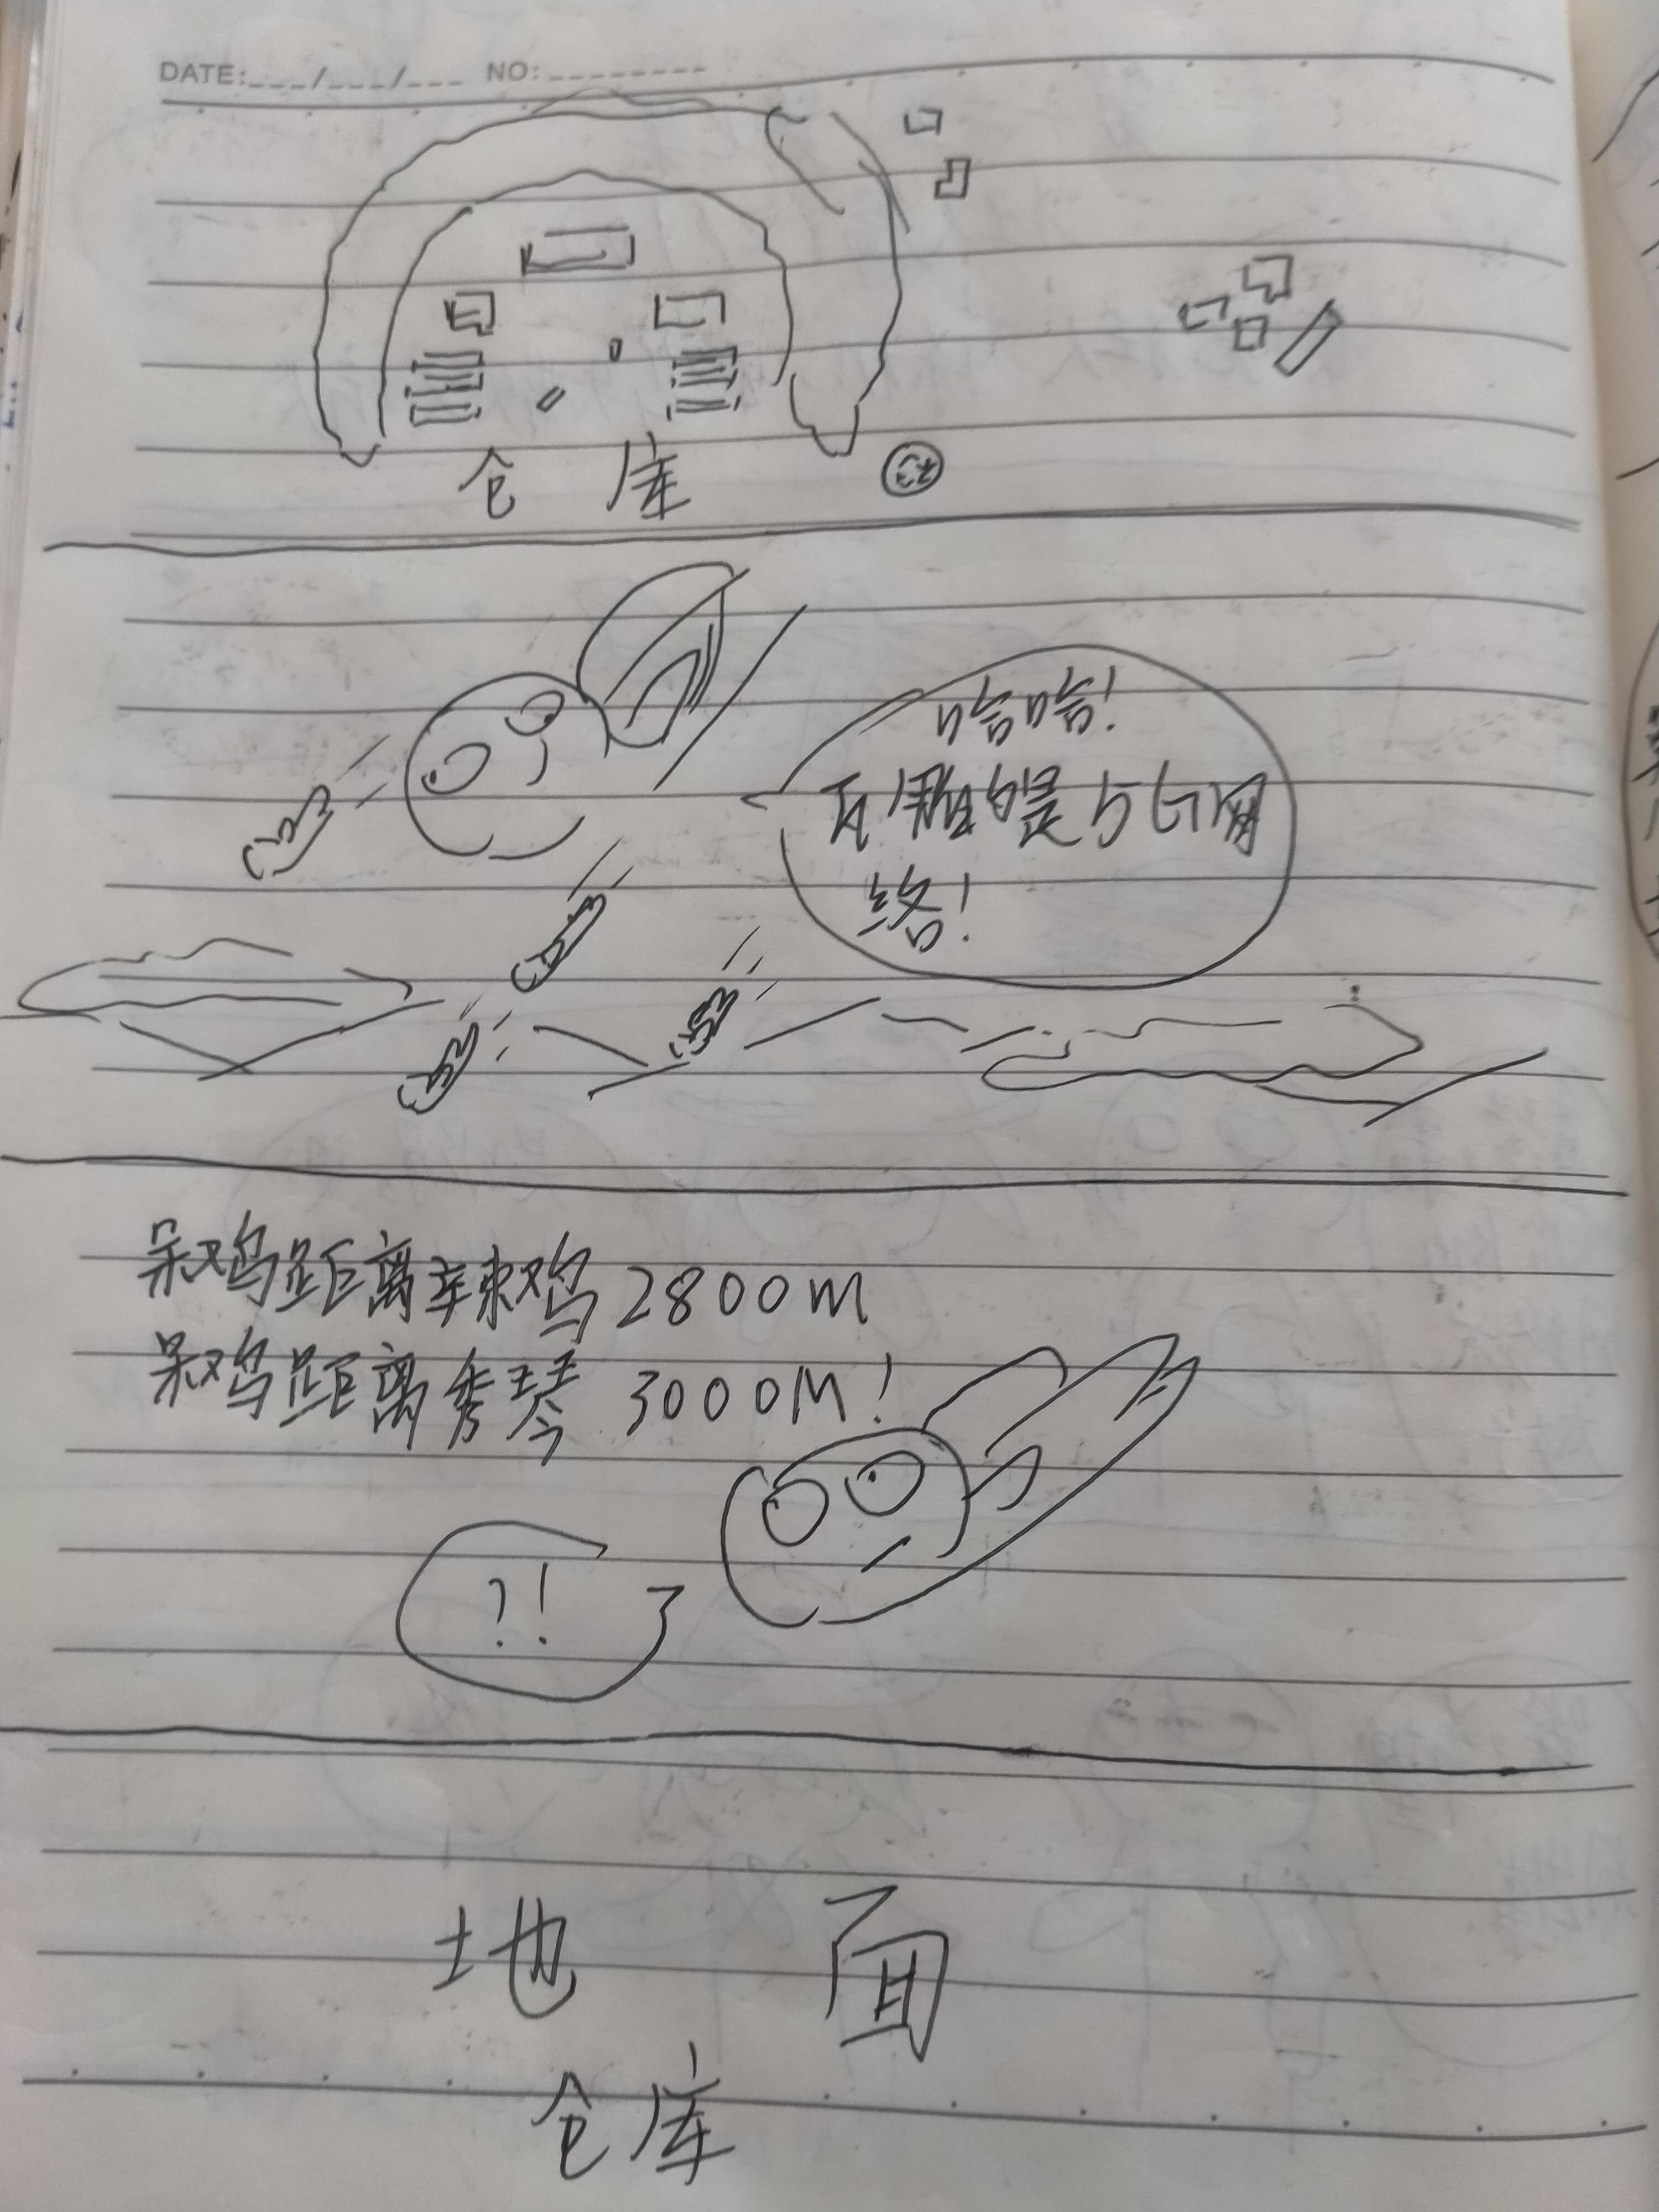 DATE:___/___/___ NO:________
仓库
哈哈!
是5G网
络!
呆鸡距离辣鸡2800M
呆鸡距离秀琴3000M!
?!
地面
仓库